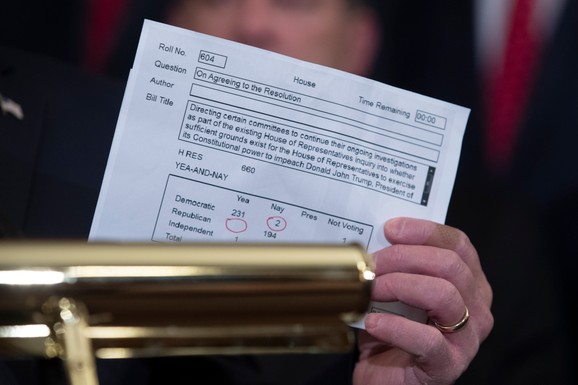 Roll No. 604
House
Time Remaining 00:00
Question On Agreeing to the Resolution
Author
Bill Title Directing certain committees to continue their ongoing investigations
as part of the existing House of Representatives inquiry into whether
sufficient grounds exist for the House of Representatives to exercise
its Constitutional power to impeach Donald John Trump, President of
H RES 660
YEA-AND-NAY
Yea Nay Pres Not Voting
Democratic 231 2
Republican 194
Independent 1
Total